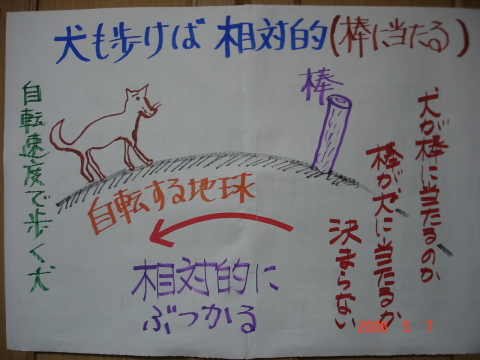 犬も歩けば 相対的(棒に当たる)
棒
犬が棒に当たるのか
棒が犬に当たるか
決まらない
自転速度で歩く犬
自転する地球
相対的に
ぶつかる